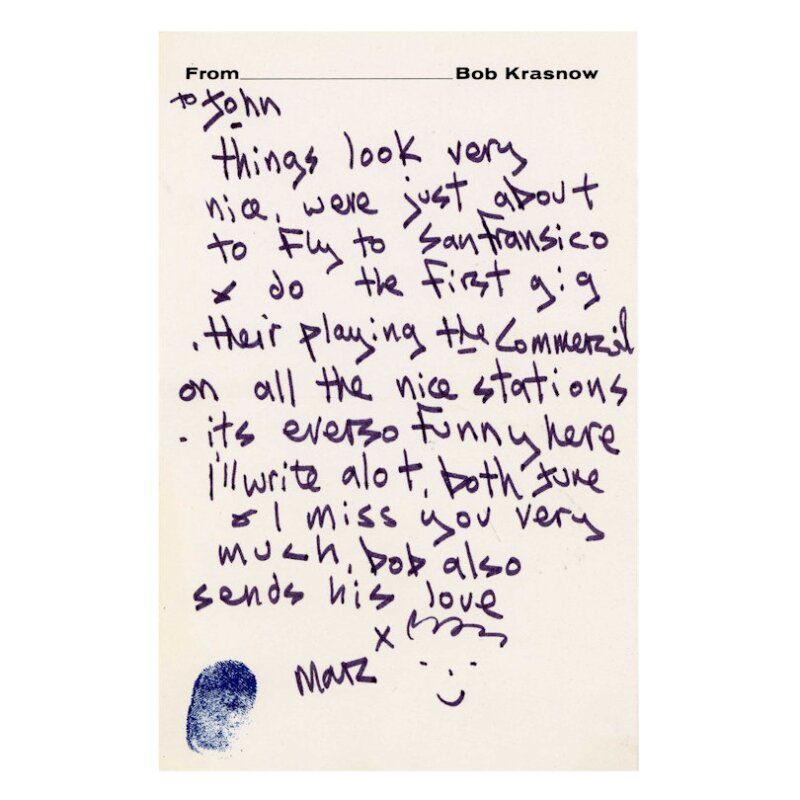 From Bob Krasnow
to John
things look very
nice, were just about
to Fly to sanfransico
& do the first gig
. their playing the commerzil
on all the nice stations
. its everso funny here
I'll write alot, both June
& I miss you very
much, bob also
sends his love
x
Marz